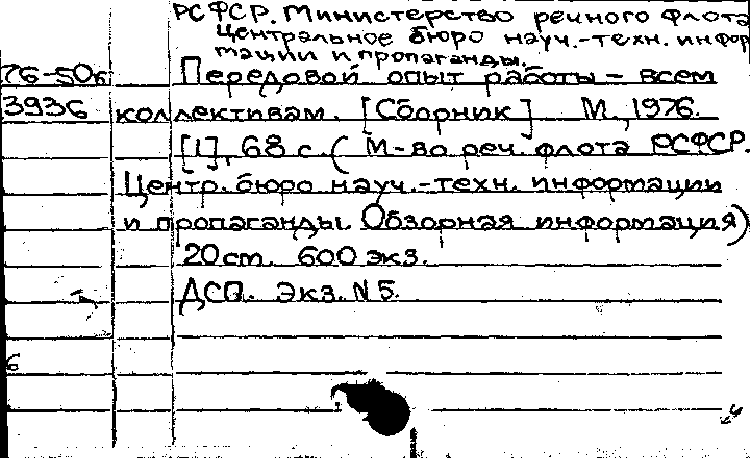 РСФСР. Министерство речного флота
Центральное бюро науч.-техн. инфор
мации и пропаганды.
76-50к Передовой опыт работы – всем
3936 коллективам. [Сборник] М., 1976.
[1], 68 с. (М-во реч. флота РСФСР.
Центр. бюро науч.-техн. информации
и пропаганды. Обзорная информация)
20 см. 600 экз.
ДСП. Экз. N 5.